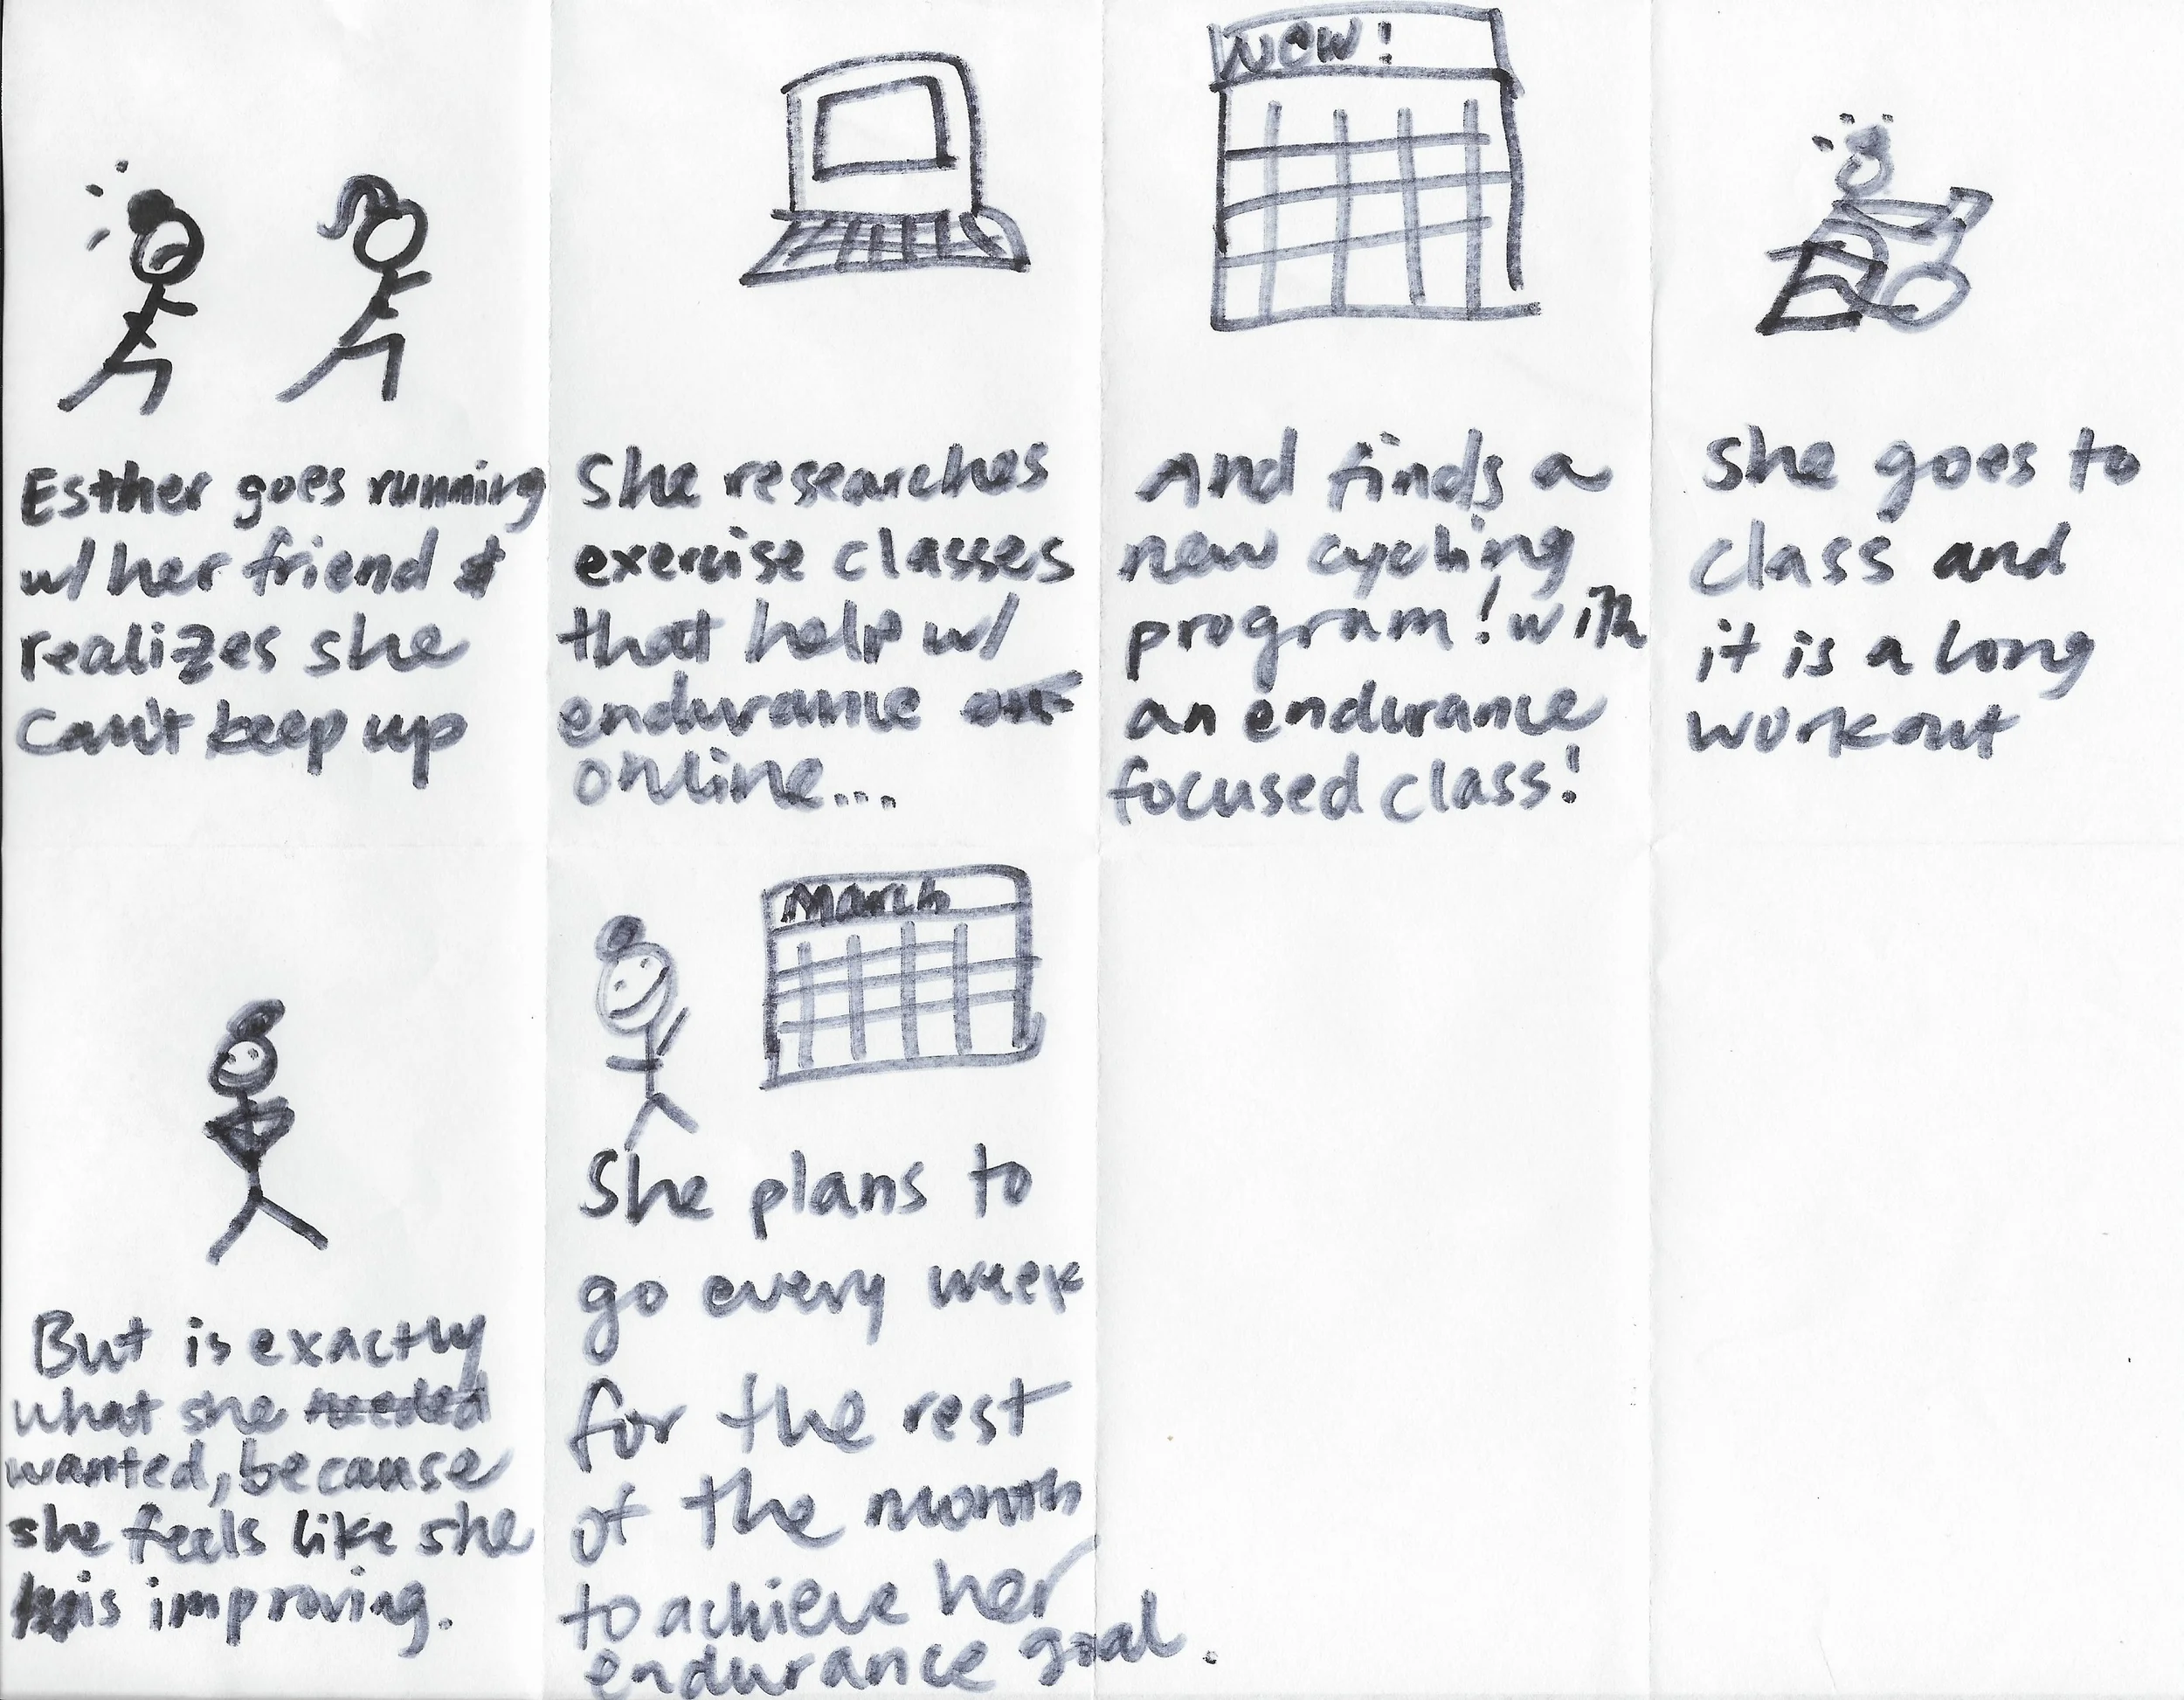 Esther goes running
w/ her friend &
realizes she
can't keep up
She researches
exercise classes
that help w/
endurance
online...
NEW!
And finds a
new cycling
program! with
an endurance
focused class!
She goes to
class and
it is a long
workout
But is exactly
what she needed
wanted, because
she feels like she
is improving.
March
She plans to
go every week
for the rest
of the month
to achieve her
endurance goal.